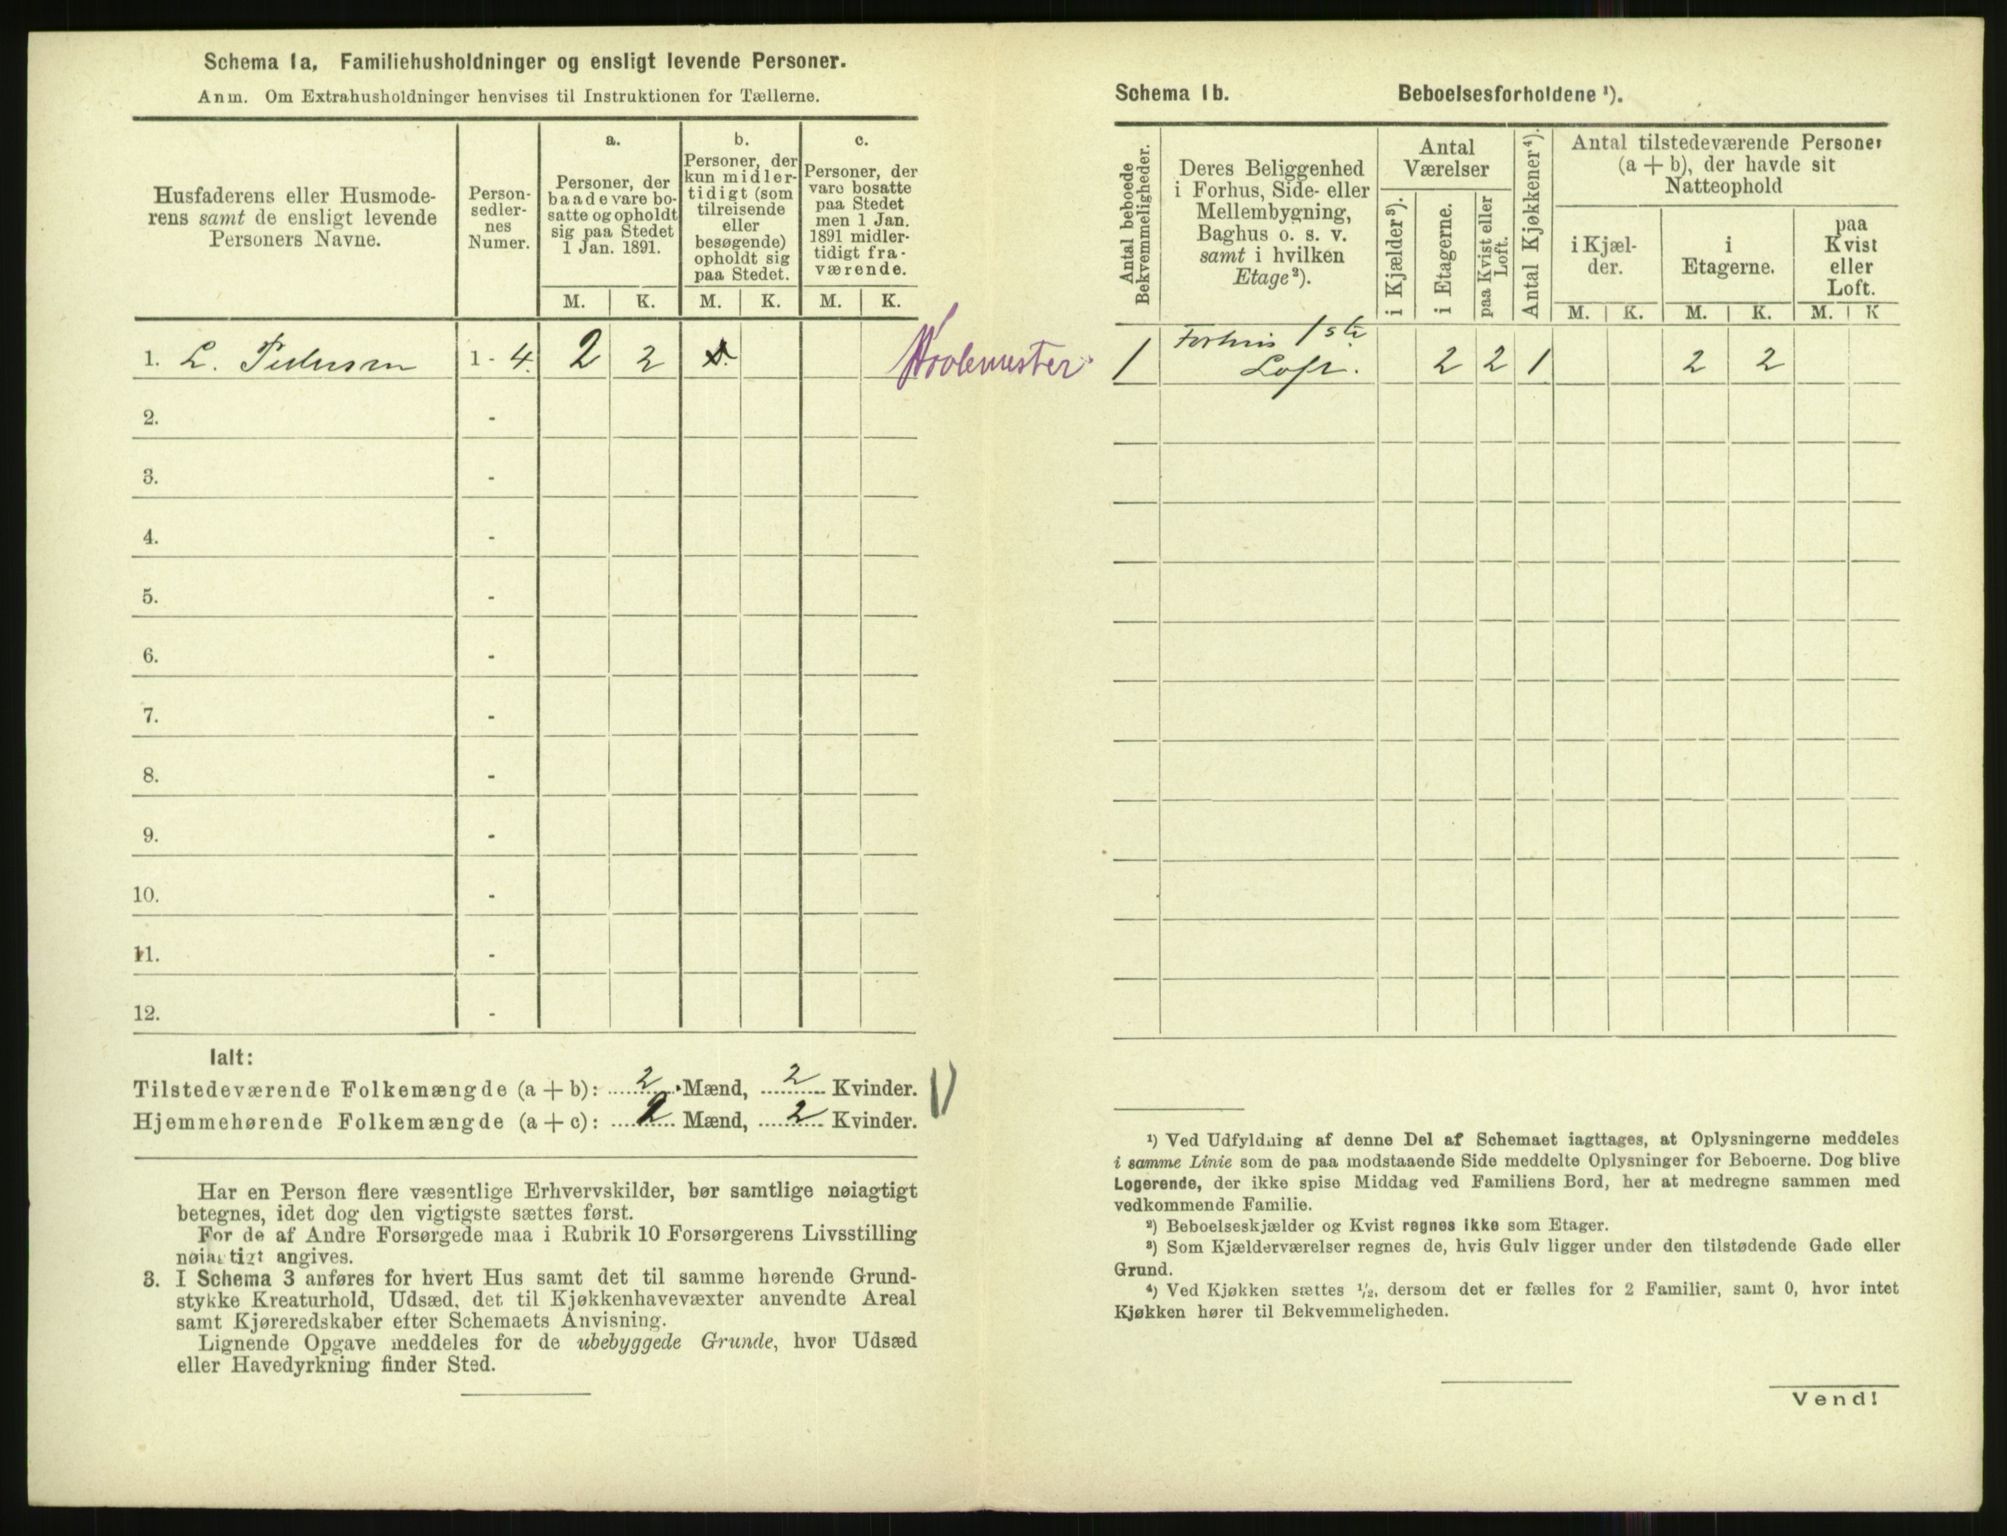 Schema 1a, Familiehusholdninger og ensligt levende Personer.
Anm. Om Extrahusholdninger henvises til Instruktionen for Tællerne.
Husfaderens eller Husmode-
rens samt de ensligt levende
Personers Navne.
Person-
sedler-
nes
Numer.
a.
Personer, der
baade vare bo-
satte og opholdt
sig paa Stedet
1 Jan. 1891.
M. K.
b.
Personer, der
kun midler-
tidigt (som
tilreisende
eller
besøgende)
opholdt sig
paa Stedet.
M. K.
c.
Personer, der
vare bosatte
paa Stedet
men 1 Jan.
1891 midler-
tidigt fra-
værende.
M. K.
1. L. Pedersen 1 - 4. 2 2
2. -
3. -
4. -
5. -
6. -
7. -
8. -
9. -
10. -
11. -
12. -
Ialt:
Tilstedeværende Folkemængde (a + b): 2 Mænd, 2 Kvinder.
Hjemmehørende Folkemængde (a + c): 2 Mænd, 2 Kvinder.
Har en Person flere væsentlige Erhvervskilder, bør samtlige nøiagtigt
betegnes, idet dog den vigtigste sættes først.
For de af Andre Forsørgede maa i Rubrik 10 Forsørgerens Livsstilling
nøiagtigt angives.
3. I Schema 3 anføres for hvert Hus samt det til samme hørende Grund-
stykke Kreaturhold, Udsæd, det til Kjøkkenhavevæxter anvendte Areal
samt Kjøreredskaber efter Schemaets Anvisning.
Lignende Opgave meddeles for de ubebyggede Grunde, hvor Udsæd
eller Havedyrkning finder Sted.
Schema 1b. Beboelsesforholdene ¹).
Antal beboede
Bekvemmeligheder.
Deres Beliggenhed
i Forhus, Side- eller
Mellembygning,
Baghus o. s. v.
samt i hvilken
Etage²).
Antal
Værelser
i Kjælder³).
i Etagerne.
paa Kvist eller
Loft.
Antal Kjøkkener⁴).
Antal tilstedeværende Personer
(a + b), der havde sit
Natteophold
i Kjæl-
der.
M. K.
i
Etagerne.
M. K.
paa
Kvist
eller
Loft.
M. K
1 Forhus 1ste
Loft. 2 2 1 2 2
¹) Ved Udfyldning af denne Del af Schemaet iagttages, at Oplysningerne meddeles
i samme Linie som de paa modstaaende Side meddelte Oplysninger for Beboerne. Dog blive
Logerende, der ikke spise Middag ved Familiens Bord, her at medregne sammen med
vedkommende Familie.
²) Beboelseskjælder og Kvist regnes ikke som Etager.
³) Som Kjælderværelser regnes de, hvis Gulv ligger under den tilstødende Gade eller
Grund.
⁴) Ved Kjøkken sættes ½, dersom det er fælles for 2 Familier, samt 0, hvor intet
Kjøkken hører til Bekvemmeligheden.
Vend!